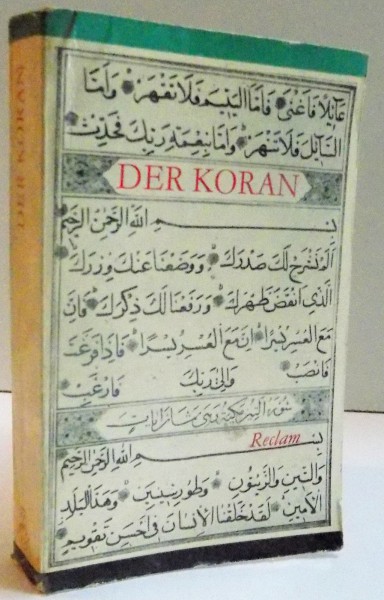 DER KORAN
عَآئِلًا فَاَغْنٰى فَاَمَّا الْيَتِيمَ فَلَا تَقْهَرْ وَاَمَّا
السَّآئِلَ فَلَا تَنْهَرْ وَاَمَّا بِنِعْمَةِ رَبِّكَ فَحَدِّثْ
DER KORAN
بِسْمِ اللّٰهِ الرَّحْمٰنِ الرَّحِيمِ
اَلَمْ نَشْرَحْ لَكَ صَدْرَكَ وَوَضَعْنَا عَنْكَ وِزْرَكَ
الَّذِي اَنْقَضَ ظَهْرَكَ وَرَفَعْنَا لَكَ ذِكْرَكَ فَاِنَّ
مَعَ الْعُسْرِ يُسْرًا اِنَّ مَعَ الْعُسْرِ يُسْرًا فَاِذَا فَرَغْتَ
فَانْصَبْ وَاِلٰى رَبِّكَ فَارْغَبْ
Reclam
بِسْمِ اللّٰهِ الرَّحْمٰنِ الرَّحِيمِ
وَالتِّينِ وَالزَّيْتُونِ وَطُورِ سِينِينَ وَهٰذَا الْبَلَدِ
الْاَمِينِ لَقَدْ خَلَقْنَا الْاِنْسَانَ فِي اَحْسَنِ تَقْوِيمٍ